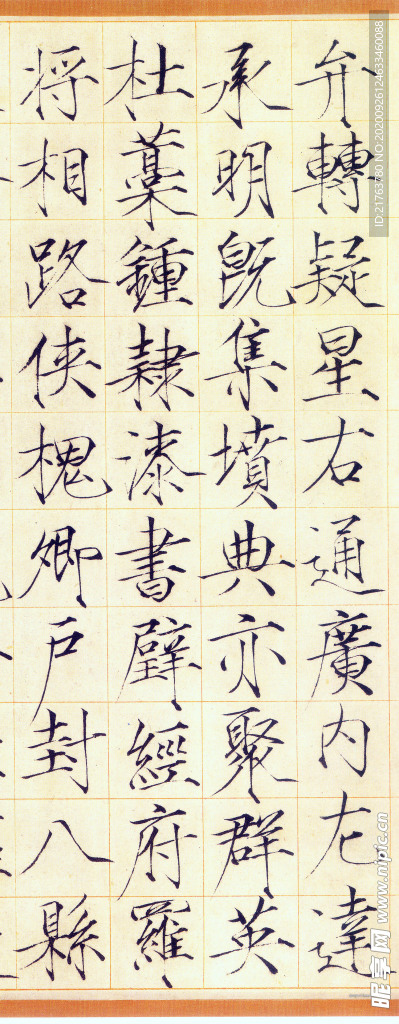 弁轉疑星右通廣内左達
承明既集墳典亦聚群英
杜藁鍾隸漆書壁經府羅
将相路俠槐卿戶封八縣
ID:21763780 NO:20200926124633460088
昵享网 www.nipic.cn